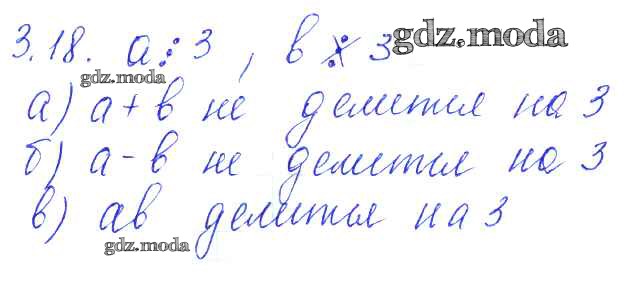 3.18. а ⋮ 3, в ⋮̸ 3 gdz.moda
gdz.moda
а) а + в не делится на 3
б) а - в не делится на 3
в) ав делится на 3
gdz.moda